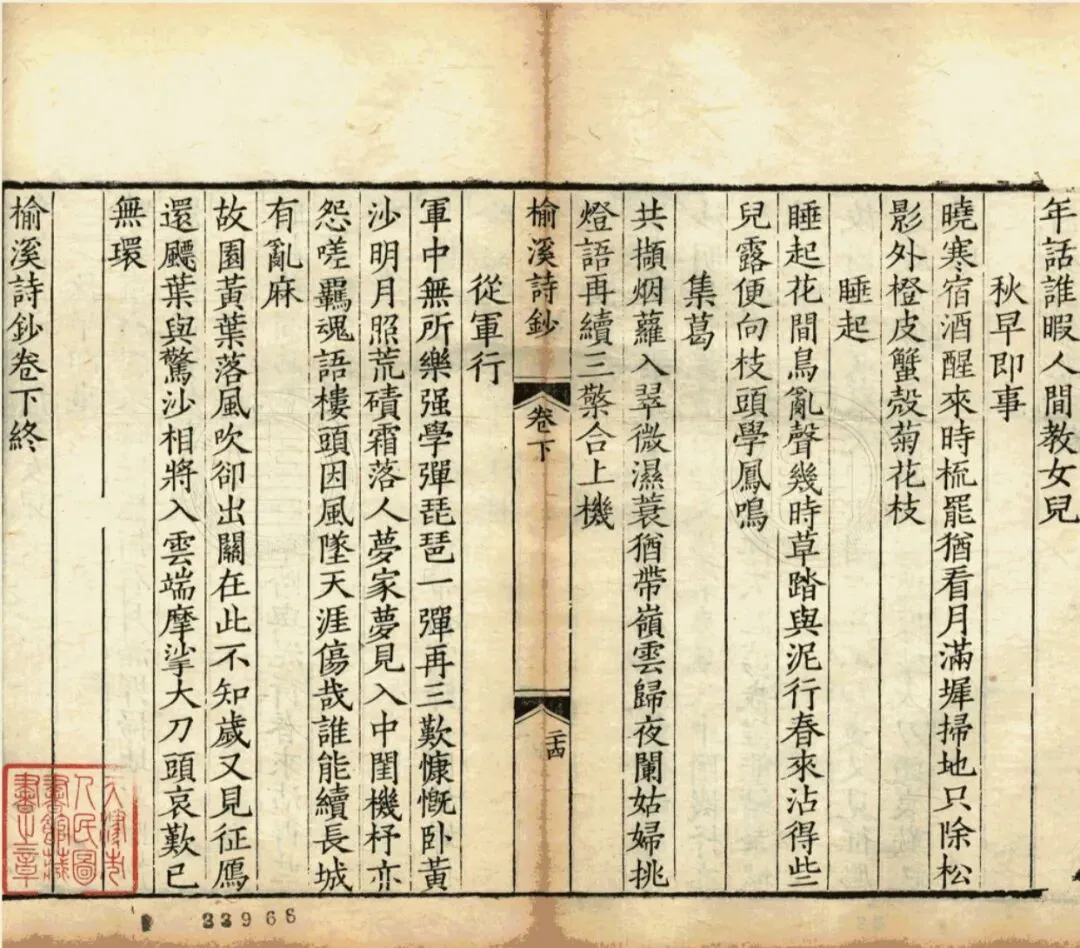 年話誰暇人間教女兒
秋早即事
曉寒宿酒醒來時梳罷猶看月滿墀掃地只除松
影外橙皮蟹殼菊花枝
睡起
睡起花間鳥亂聲幾時草踏與泥行春來沾得些
兒露便向枝頭學鳳鳴
集葛
共擷烟蘿入翠微濕蓑猶帶嶺雲歸夜闌姑婦挑
燈語再續三檠合上機
榆溪詩鈔
卷下
二四
從軍行
軍中無所樂强學彈琵琶一彈再三歎慷慨卧黃
沙明月照荒磧霜落人夢家夢見入中閨機杼亦
怨嗟羈魂語樓頭因風墜天涯傷哉誰能續長城
有亂麻
故園黃葉落風吹卻出關在此不知歲又見征鴈
還飃葉與驚沙相將入雲端摩挲大刀頭哀歎已
無環
榆溪詩鈔卷下終
天津市
人民圖
書館藏
書之章
33968